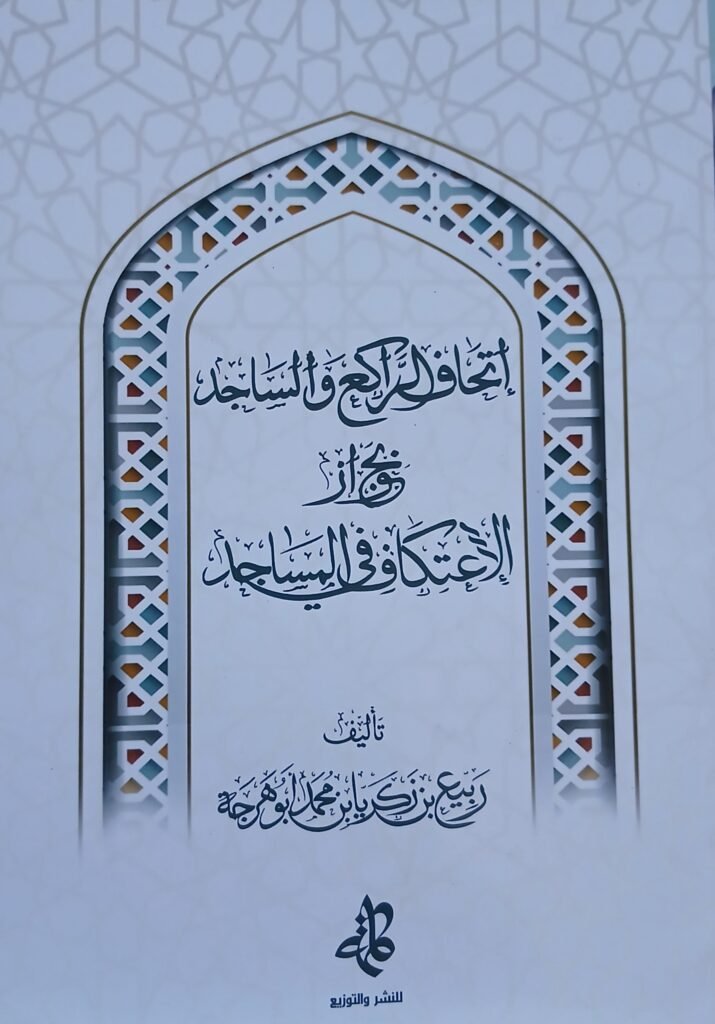 إتحاف الراكع والساجد
بجواز
الاعتكاف في المساجد
تأليف
ربيع بن زكريا بن محمد أبو هرجة
كلمة
للنشر والتوزيع